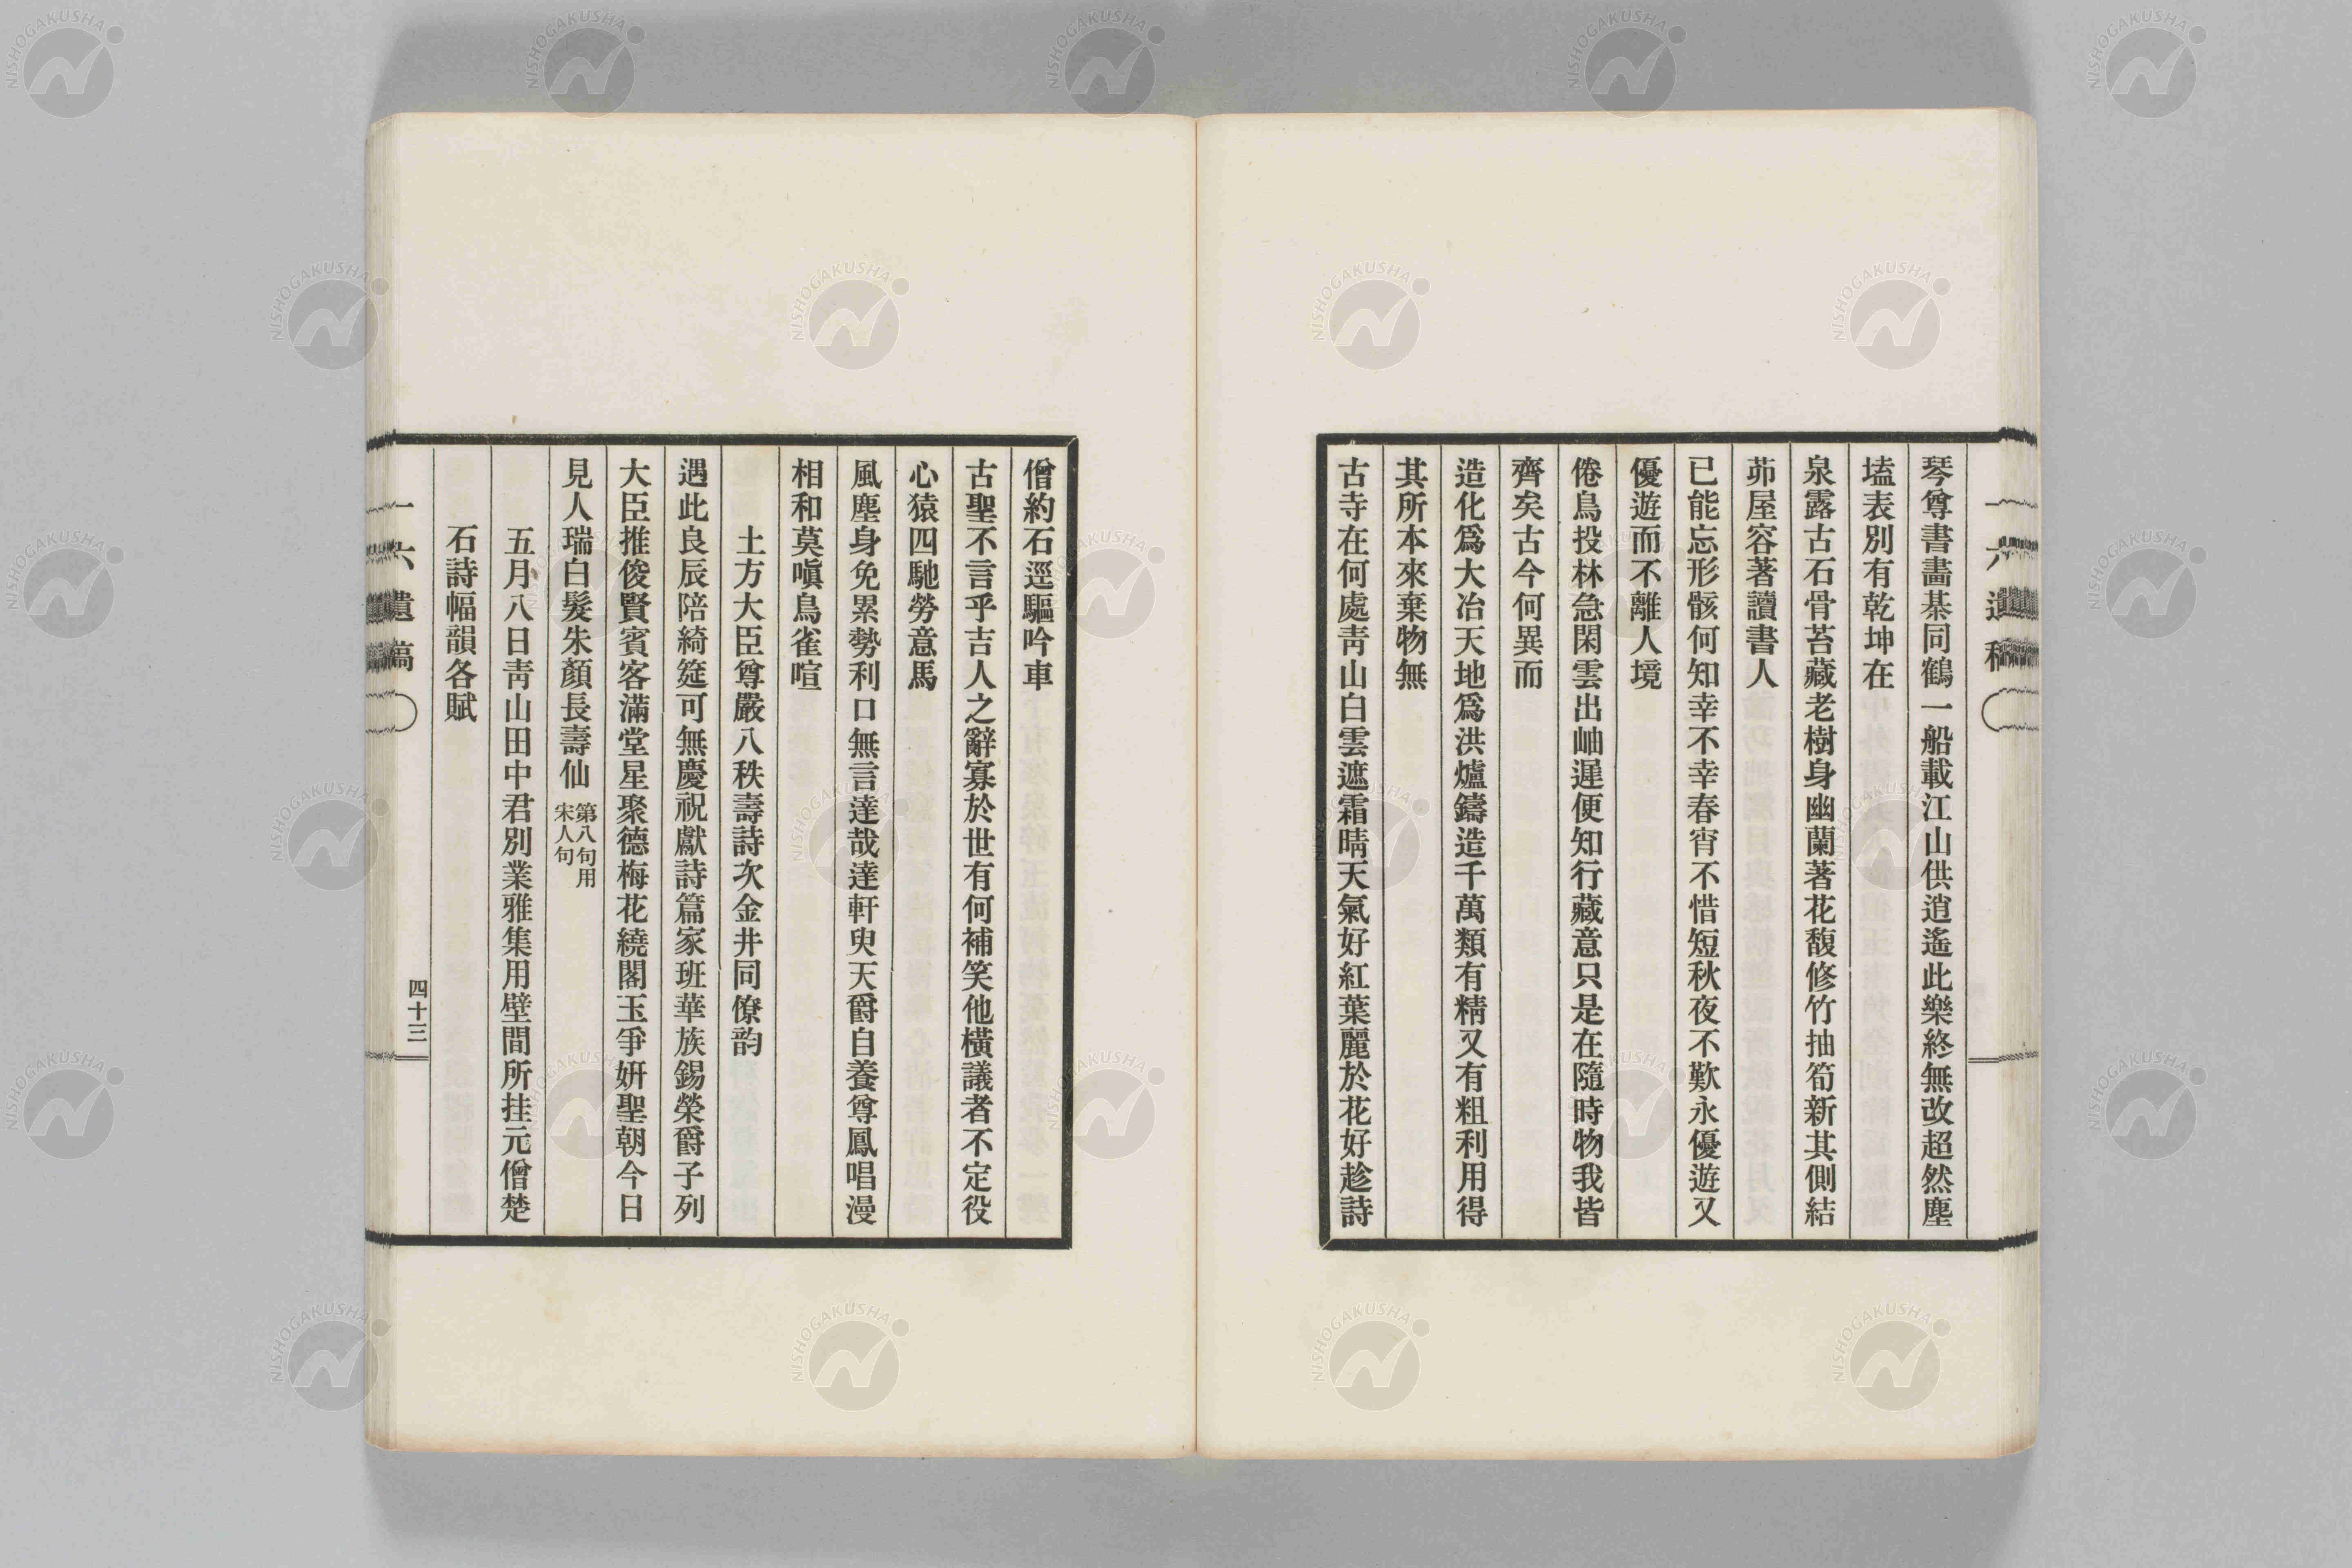 琴尊書畵棊同鶴一船載江山供逍遙此樂終無改超然塵
壒表別有乾坤在
泉露古石骨苔藏老樹身幽蘭著花馥修竹抽筍新其側結
茆屋容著讀書人
已能忘形骸何知幸不幸春宵不惜短秋夜不歎永優遊又
優遊而不離人境
倦鳥投林急閑雲出岫遲便知行藏意只是在隨時物我皆
齊矣古今何異而
造化爲大冶天地爲洪爐鑄造千萬類有精又有粗利用得
其所本來棄物無
古寺在何處靑山白雲遮霜晴天氣好紅葉麗於花好趁詩
僧約石逕驅吟車
古聖不言乎吉人之辭寡於世有何補笑他橫議者不定役
心猿四馳勞意馬
風塵身免累勢利口無言達哉達軒臾天爵自養尊鳳唱漫
相和莫嗔鳥雀喧
土方大臣尊嚴八秩壽詩次金井同僚韵
遇此良辰陪綺筵可無慶祝獻詩篇家班華族錫榮爵子列
大臣推俊賢賓客滿堂星聚德梅花繞閣玉爭妍聖朝今日
見人瑞白髮朱顏長壽仙 第八句用
宋人句
五月八日靑山田中君別業雅集用壁間所挂元僧楚
石詩幅韻各賦
一六遺稿
四十三